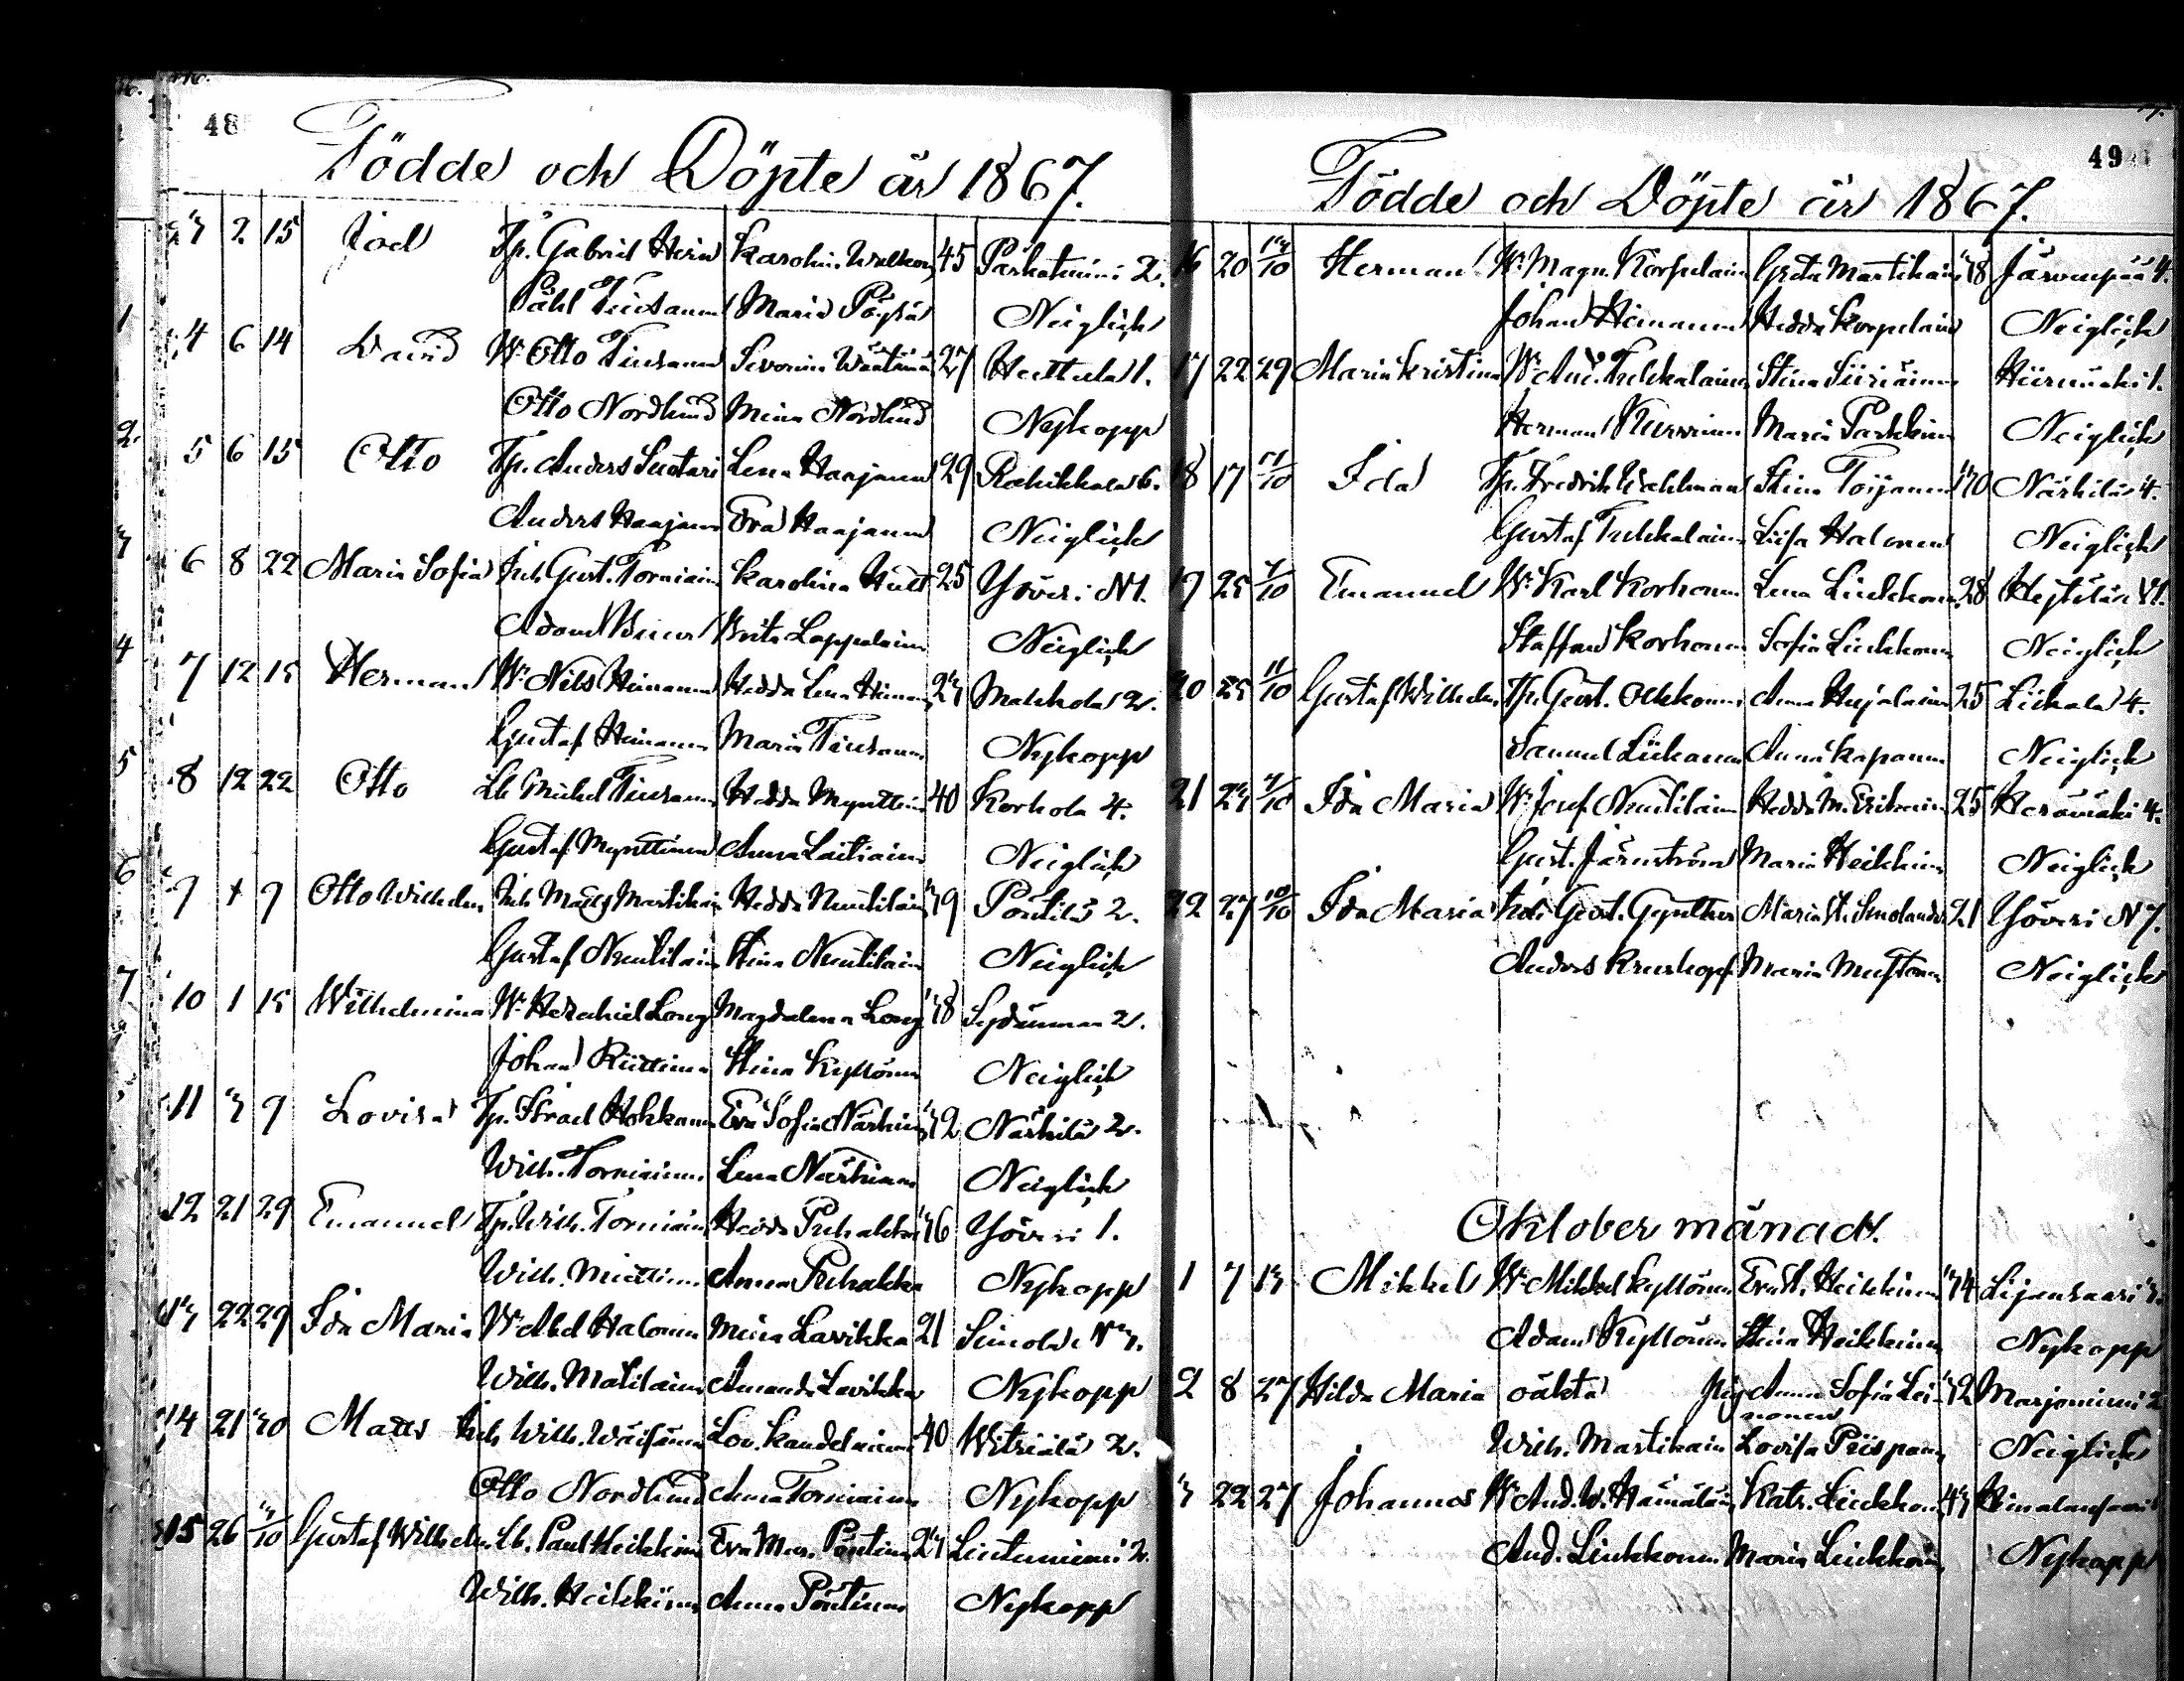 48
Födde och Döpte år 1867.
3 2 15 Joel Tp. Gabriel Hirn Karolin. Walkon. 45 Parkatniemi 2.
Påhl Tiusanen Maria Pöyhiä Neiglick
4 6 14 David W. Otto Tiusanen Severina Väätäinen 27 Huttula 1.
Otto Nordlund Mina Nordlund Nykopp
5 6 15 Otto Tp. Anders Suutari Lena Haajanen 29 Rahikkala 6.
Anders Haajanen Eva Haajanen Neiglick
6 8 22 Maria Sofia Inh. Gust. Torniain. Karolina Hult 25 Yöveri N 1.
Adam Brita Lappalainen Neiglick
7 12 15 Herman W. Nils Heimanen Hedda Lena Heiman. 23 Makkola 2.
Gustaf Heimanen Maria Tiusanen Nykopp
8 12 22 Otto Lb. Mickel Tiusanen Hedda Mynttinen 40 Korhola 4.
Gustaf Mynttinen Anna Laitiainen Neiglick
9 + 9 Otto Wilhelm Inh. Matts Martikain. Hedda Nuutilain. 39 Pontilä 2.
Gustaf Nuutilain. Stina Nuutilain. Neiglick
10 1 15 Wilhelmina W. Hezechiel Long Magdalena Long 38 Sydänmaa 2.
Johan Kiettinen Stina Kyllönen Neiglick
11 3 9 Lovisa Tp. Israel Hokkanen Eva Sofia Närhinen 32 Närhilä 2.
Wilh. Torniainen Lena Närhinen Neiglick
12 21 29 Emanuel Tp. Wilh. Torniain. Hedda Puhakka 36 Yöveri 1.
Wilh. Miettinen Anna Puhakka Nykopp
13 22 29 Ida Maria W. Abel Halonen Mina Lavikka 21 Simola N 3.
Wilh. Matilainen Amanda Lavikka Nykopp
14 21 30 Matts Inh. Wilh. Väisänen Lov. Kandelainen 40 Witriälä 2.
Otto Nordlund Anna Torniainen Nykopp
15 26 3/10 Gustaf Wilhelm Lb. Paul Heikkinen Eva Mar. Pöntinen 23 Lintuniemi 2.
Wilh. Heikkinen Anna Pöntinen Nykopp
49
Födde och Döpte år 1867.
16 20 13/10 Herman W. Magn. Korpelain. Greta Martikain. 38 Järvenpää 4.
Johan Heimanen Hedda Korpelain. Neiglick
17 22 29 Maria Kristina W. And. Tukkalainen Stina Siiriäinen Hiirmäki 1.
Herman Kurvinen Maria Parkkinen Neiglick
18 17 11/10 Ida Tp. Fredrik Wahlman Stina Toijanen 30 Närhilä 4.
Gustaf Tukkalainen Lisa Halonen Neiglick
19 25 7/10 Emanuel W. Karl Korhonen Lena Liukkonen 28
Staffan Korhonen Sofia Liukkonen Neiglick
20 25 11/10 Gustaf Wilhelm Tp. Gust. Olkkonen Anna Hujalainen 25 Liikala 4.
Samuel Liikanen Anna Kapanen Neiglick
21 23 7/10 Ida Maria W. Josef Nuutilain. Hedda M. Erikain. 25 Harämäki 4.
Gust. Järnström Maria Heikkinen Neiglick
22 27 10/10 Ida Maria Gust. Gynther Maria H. Smolander 21 Yöveri N 7.
Anders Kruskopf Maria Mustonen Neiglick
Oktober månad.
1 7 13 Mikkel W. Mikkel Kyllönen Eva St. Heikkinen 34 Lijansaari 3.
Adam Kyllönen Stina Heikkinen Nykopp
2 8 27 Hilda Maria oäkta Pig. Anna Sofia Lei- 32 Marjoniemi 2
nonen
Wilh. Martikain. Lovisa Piispan. Neiglick
3 22 27 Johannes W. And. W. Hämäläin. Katr. Liukkon. 43 Himalansaari
And. Liukkonen Maria Liukkon. Nykopp